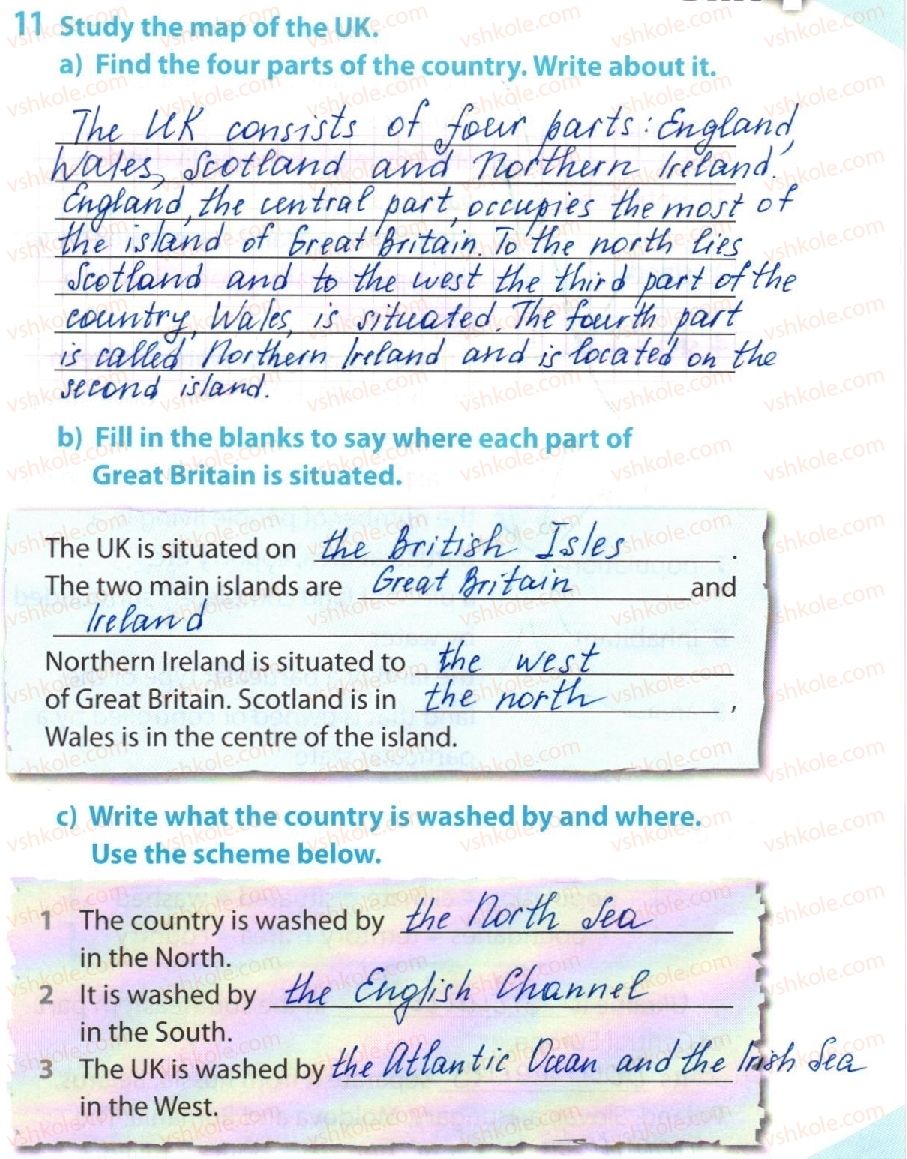 11 Study the map of the UK.
a) Find the four parts of the country. Write about it.
The UK consists of four parts: England,
Wales, Scotland and Northern Ireland.
England, the central part, occupies the most of
the island of Great Britain. To the north lies
Scotland and to the west the third part of the
country, Wales, is situated. The fourth part
is called Northern Ireland and is located on the
second island.
b) Fill in the blanks to say where each part of
Great Britain is situated.
The UK is situated on the British Isles.
The two main islands are Great Britain and
Ireland
Northern Ireland is situated to the west
of Great Britain. Scotland is in the north,
Wales is in the centre of the island.
c) Write what the country is washed by and where.
Use the scheme below.
1 The country is washed by the North Sea
in the North.
2 It is washed by the English Channel
in the South.
3 The UK is washed by the Atlantic Ocean and the Irish Sea
in the West.
vshkole.com